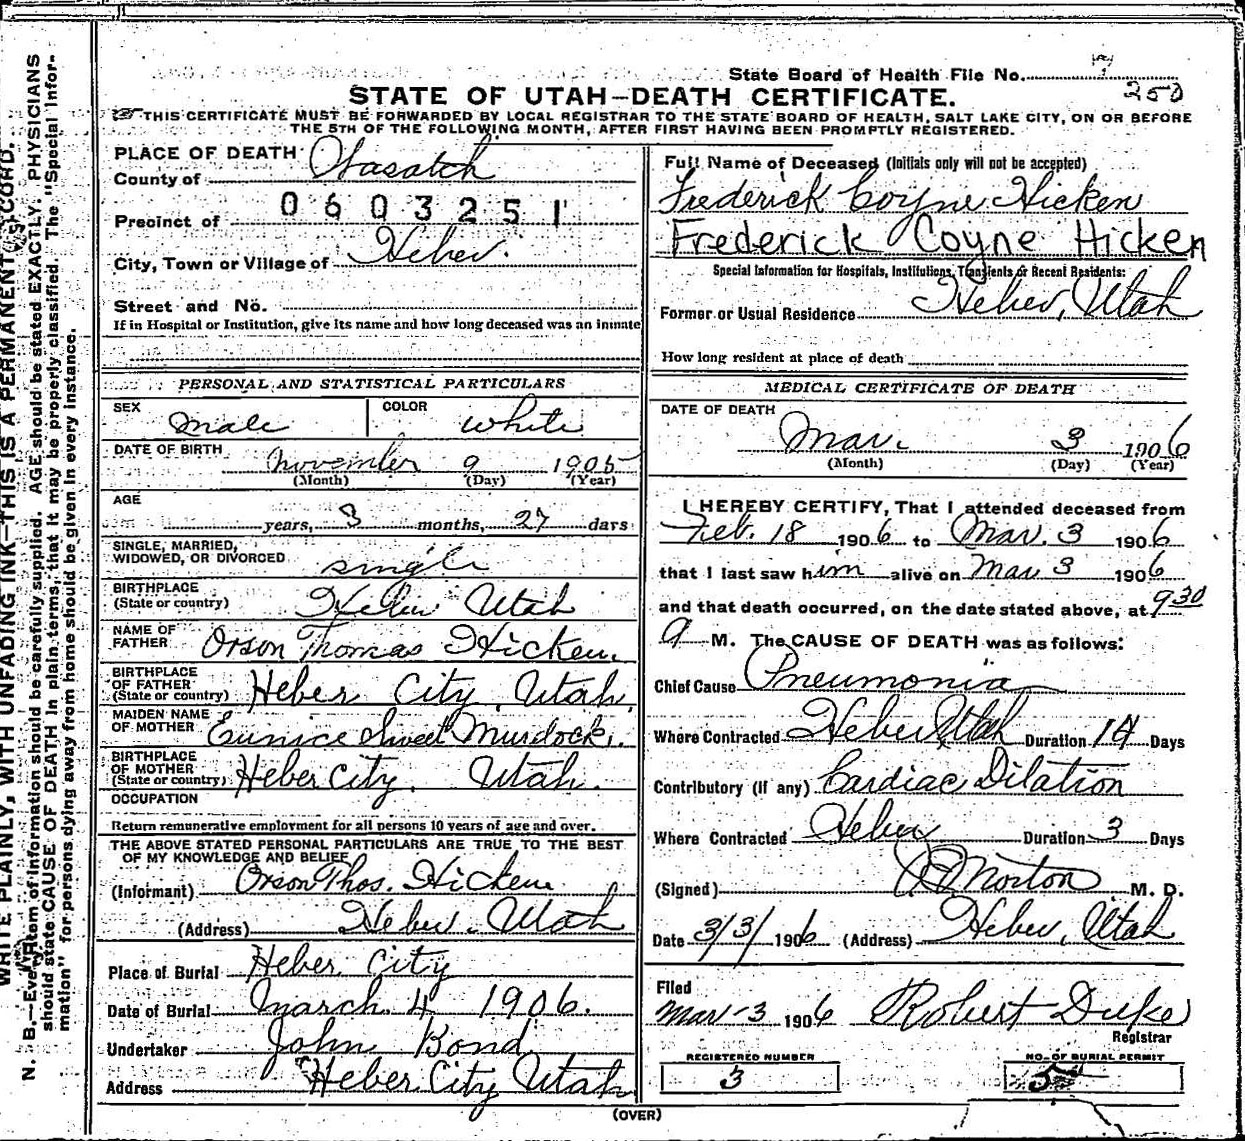 State Board of Health File No.
250
STATE OF UTAH—DEATH CERTIFICATE.
THIS CERTIFICATE MUST BE FORWARDED BY LOCAL REGISTRAR TO THE STATE BOARD OF HEALTH, SALT LAKE CITY, ON OR BEFORE
THE 5TH OF THE FOLLOWING MONTH, AFTER FIRST HAVING BEEN PROMPTLY REGISTERED.
PLACE OF DEATH
County of Wasatch
Precinct of 0603251
City, Town or Village of Heber.
Street and No.
If in Hospital or Institution, give its name and how long deceased was an inmate
PERSONAL AND STATISTICAL PARTICULARS
SEX male COLOR white
DATE OF BIRTH November 9 1905
(Month) (Day) (Year)
AGE years, 3 months, 27 days
SINGLE, MARRIED,
WIDOWED, OR DIVORCED single
BIRTHPLACE
(State or country) Heber Utah
NAME OF
FATHER Orson Thomas Hicken.
BIRTHPLACE
OF FATHER
(State or country) Heber City, Utah.
MAIDEN NAME
OF MOTHER Eunice Sweet Murdock.
BIRTHPLACE
OF MOTHER
(State or country) Heber City. Utah.
OCCUPATION
Return remunerative employment for all persons 10 years of age and over.
THE ABOVE STATED PERSONAL PARTICULARS ARE TRUE TO THE BEST
OF MY KNOWLEDGE AND BELIEF
(Informant) Orson Thos. Hicken
(Address) Heber. Utah
Place of Burial Heber City
Date of Burial March 4 1906.
Undertaker John Bond
Address Heber City Utah
Full Name of Deceased (Initials only will not be accepted)
Frederick Coyne Hicken
Frederick Coyne Hicken
Special Information for Hospitals, Institutions, Transients or Recent Residents:
Former or Usual Residence Heber, Utah
How long resident at place of death
MEDICAL CERTIFICATE OF DEATH
DATE OF DEATH
Mar. 3 1906
(Month) (Day) (Year)
I HEREBY CERTIFY, That I attended deceased from
Feb. 18 1906 to Mar. 3 1906
that I last saw him alive on Mar 3 1906
and that death occurred, on the date stated above, at 9 30
a M. The CAUSE OF DEATH was as follows:
Chief Cause Pneumonia
Where Contracted Heber Utah Duration 14 Days
Contributory (if any) Cardiac Dilation
Where Contracted Heber Duration 3 Days
(Signed) Morton M. D.
Date 3/3/ 1906 (Address) Heber, Utah
Filed
Mar 3 1906 Robert Duke
Registrar
REGISTERED NUMBER
3
NO. OF BURIAL PERMIT
5
(OVER)
WRITE PLAINLY, WITH UNFADING INK—THIS IS A PERMANENT RECORD.
N. B.—Every item of information should be carefully supplied. AGE should be stated EXACTLY. PHYSICIANS
should state CAUSE OF DEATH in plain terms, that it may be properly classified. The "Special Infor-
mation" for persons dying away from home should be given in every instance.